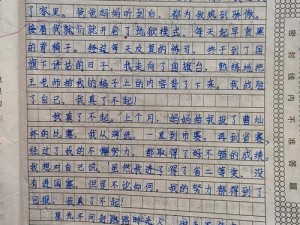 了家里。爸爸妈妈听到后，都为我感到骄傲。
接着我就开启了地狱模式，每天起早贪黑
的背稿子。经过每天反复的练习，终于到了国
旗下讲话的日子，我走向了国旗台，熟练地把
王老师给我的稿子上的内容背了下来。我战胜
了自己，我真了不起！
我真了不起。上个月，妈妈给我报了曹灿
杯的比赛，我从海选，一直到市赛，再到省赛
经过了我的不懈努力，都取得了好不错的成绩。
我想对自己说，虽然我进了得了省二等奖，没
有进国赛，但是不论如何，我的努力都得到了
回报，我真了不起！